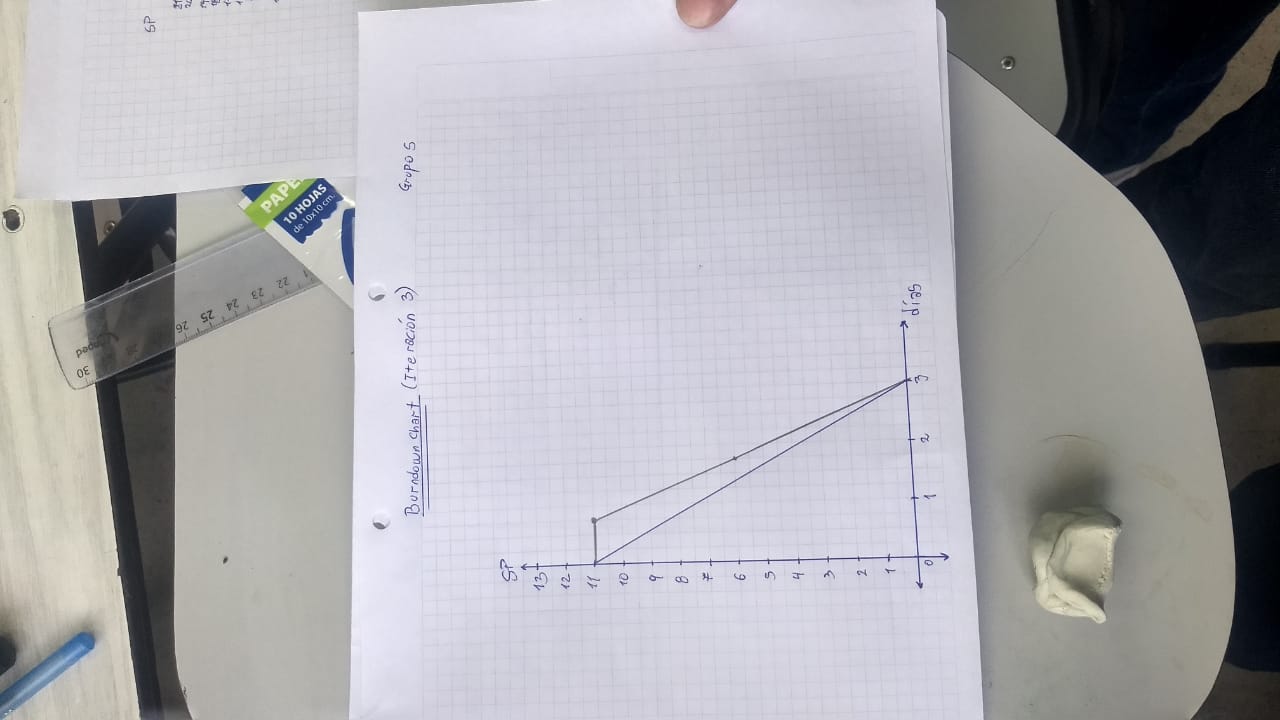 Burndown chart (Iteración 3)
Grupo 5
SP
13
12
11
10
9
8
7
6
5
4
3
2
1
0
1
2
3
días
SP
PAPE
10 HOJAS
de 10x10 cm.
30
26
25
24
23
22